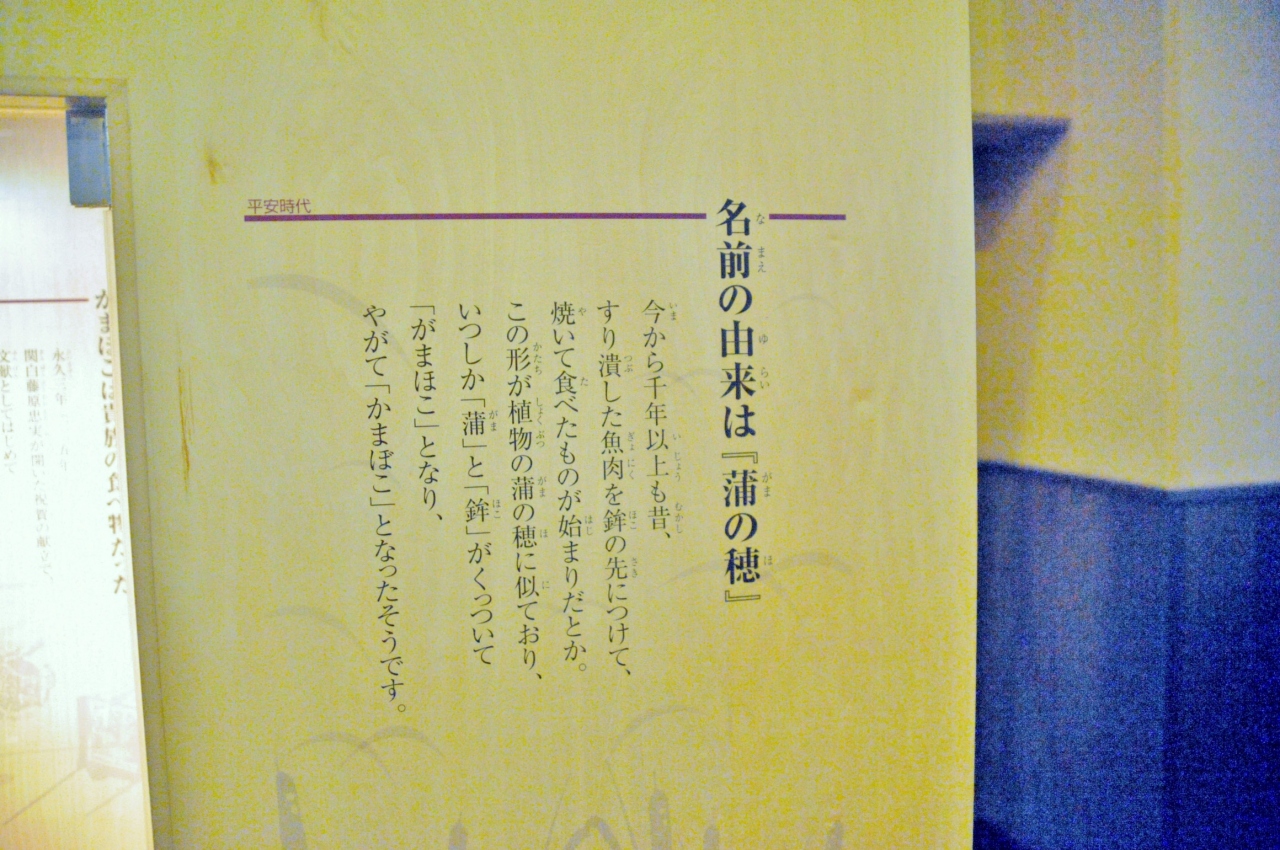 平安時代
名前の由来は『蒲の穂』
今から千年以上も昔、
すり潰した魚肉を鉾の先につけて、
焼いて食べたものが始まりだとか。
この形が植物の蒲の穂に似ており、
いつしか「蒲」と「鉾」がくっついて
「がまほこ」となり、
やがて「かまぼこ」となったそうです。
永久三年
関白藤原忠実が開いた祝賀の献立、
文献としてはじめて